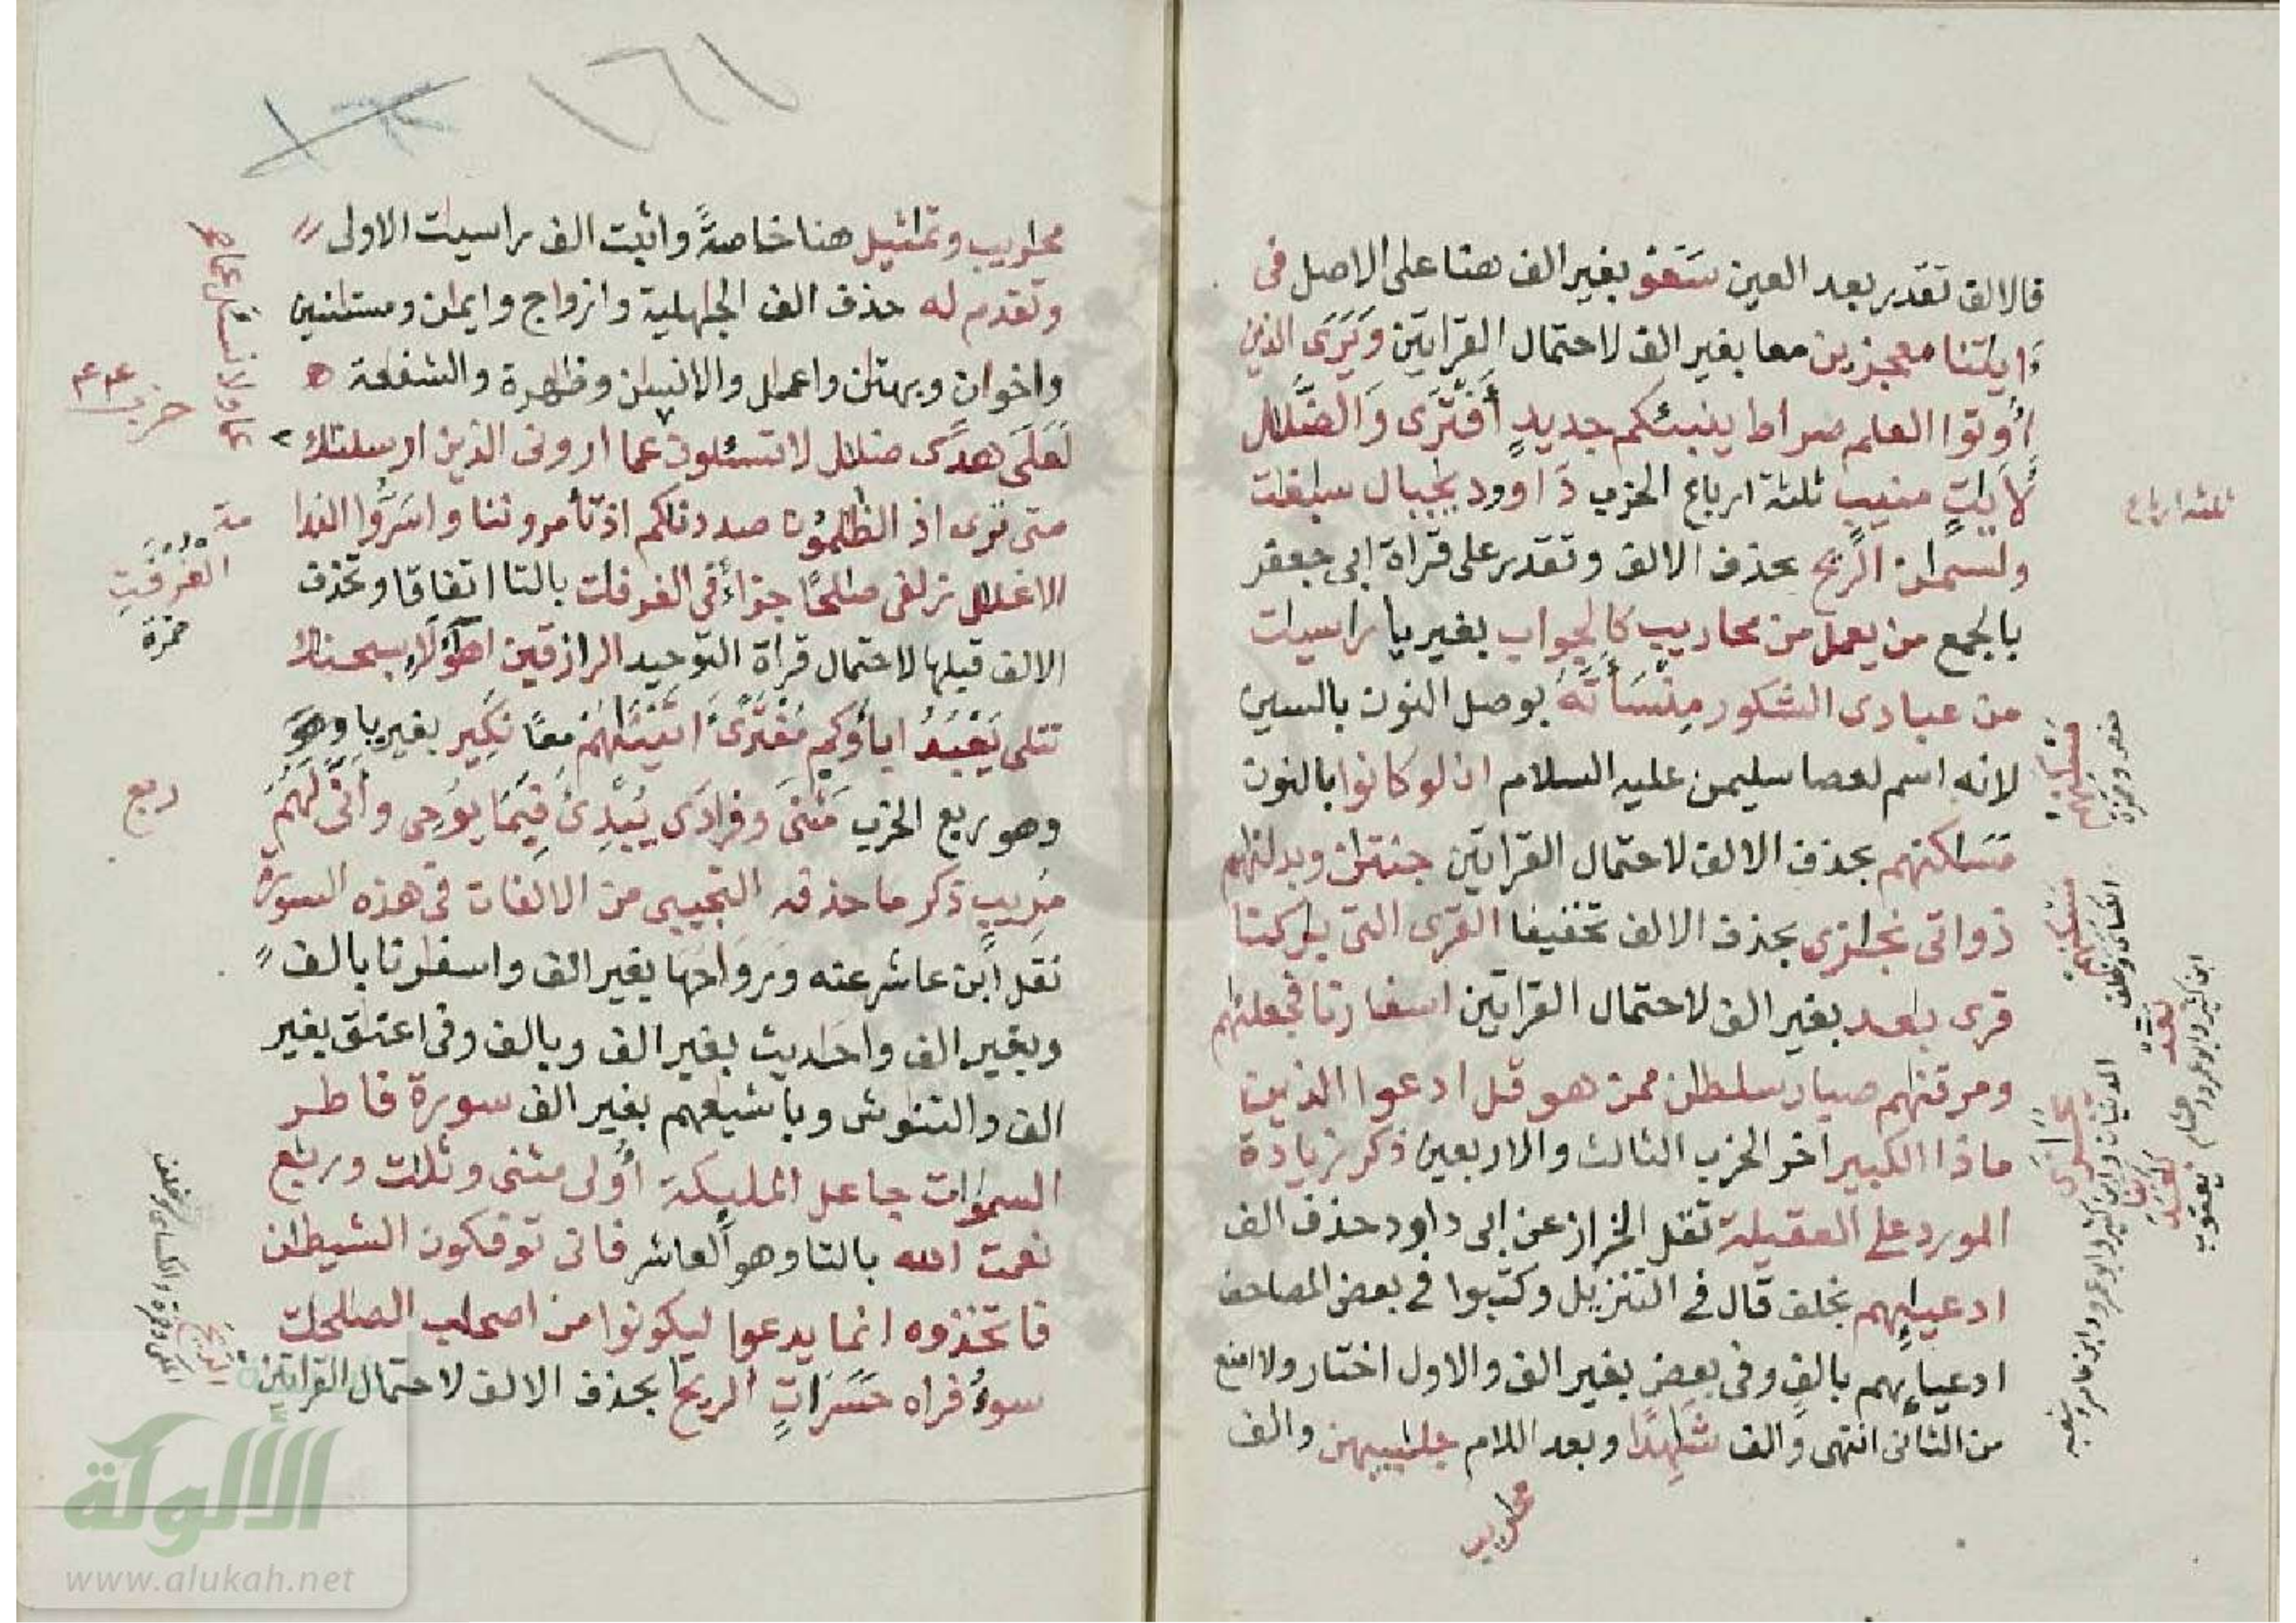 فالالف تقدر بعد العين سَعَوْ بغير الف هنا على الاصل فى
ءايتنا معجزين معا بغير الف لاحتمال القرايتين وَيَرَى الذين
اُوتوا العلم صراط ينبئكم جديدٍ أَفْتَرَى وَالضَّلل
لأيتٍ منيبٍ ثلثة ارباع الحزب دَاوود يجبال سبغت
ولسليمن الريح بحذف الالف وتقدر على قراة ابى جعفر
بالجمع من يعمل من محاريب كالجواب بغير يا راسيات
من عبادى الشكور مِنْسَأَتَهُ بوصل النون بالسين
لانه اسم لعصا سليمن عليه السلام ان لو كانوا بالنون
مَسَاكنهم بحذف الالف لاحتمال القرايتين جنتان وبدلنهم
ذواتى نجازى بحذف الالف تخفيفا القرى التى بركنا
قرى بعد بغير الف لاحتمال القرايتين اسفارنا فجعلنهم
ومزقنهم صبار سلطن ممن هو قل ادعوا الذين
ماذا الكبير اخر الحزب الثالث والاربعين ذكر زيادة
المورد على العقيلة نقل الخراز عن ابى داود حذف الف
ادعيايهم بخلف قال فى التنزيل وكتبوا فى بعض المصاحف
ادعيايهم بالف وفى بعض بغير الف والاول اختار ولا امنع
من الثانى انتهى والف شَهِدًا وبعد اللام جلبيبهن والف
محاريب
ثلثة ارباع
مسكنهم
حفص وحمزة
مسكنهم
الكسائى وخلف
بعد
ابن كثير وابو عمرو وهشام
يعقوب
١٦١
محاريب وتمثيل هنا خاصةً واثبت الف راسيت الاولى
وتقدم له حذف الف الجهلية وازواج وايمن ومستنسين
واخوان وبهتن واعمل والانسن وظهرة والشفعة
لَعَلَى هدًى ضلل لا تسئلون عما ارونى الذين ارسلنك
متى ترى اذ الظلمون صددنكم اذ تأمروننا واسَرُّوا الندا
الاغلل زلفى صلحًا جزاءُ فى الغرفات بالتا اتفاقا وتحذف
الالف قبلها لاحتمال قراة التوحيد الرازقين اهؤلاءِ سبحنك
تتلى يَعْبُدُ اباؤكم مُفْتَرًى اتينهم معًا نكير بغير يا
وهو ربع الحزب مَثْنَى وفرادَى يُبْدِئُ فَبِمَا يوحى وأنَّى لَهُمُ
مريب ذكر ما حذفه التجيبى من الالفات فى هذه السورة
نقل ابن عاشر عنه وَرَوَاحُهَا بغير الف واسفرنا بالف
وبغير الف واحاديث بغير الف وبالف وفى اعنق بغير
الف والتنوش وباشيعهم بغير الف سورة فاطر
السموات جاعل المليكة أولى مثنى وثلث وربع
نعمت الله بالتا وهو العاشر فانى توفكون الشيطن
فاتخذوه انما يدعوا ليكونوا من اصحب الصلحت
سوءُ فراه حَسَرَاتٍ الريح بحذف الالف لاحتمال القرايتين
حزب ٤٤
الغرفت
حمزة
ربع
الريح
المكى وحمزة والكسائى وخلف
الألوكة
www.alukah.net